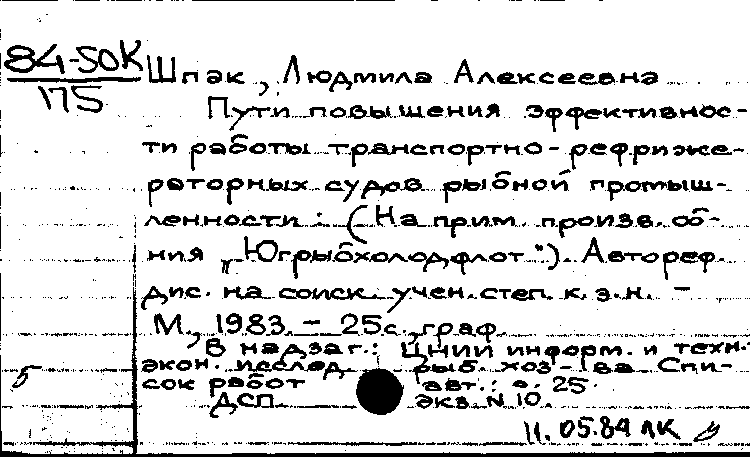 84-5ОК
175
Шпак, Людмила Алексеевна
Пути повышения эффективнос-
ти работы транспортно-рефриже-
раторных судов рыбной промыш-
ленности: (На прим. произв. об-
ния „Югрыбхолодфлот"). Автореф.
дис. на соиск. учен. степ. к. э. н. -
М., 1983. - 25с., граф.
В надзаг.: ЦНИИ информ. и техн.-
экон. исслед. рыб. хоз-ва Спи-
сок работ авт.: с. 25.
5
ДСП. экз. N 10.
11.05.84 ЛК